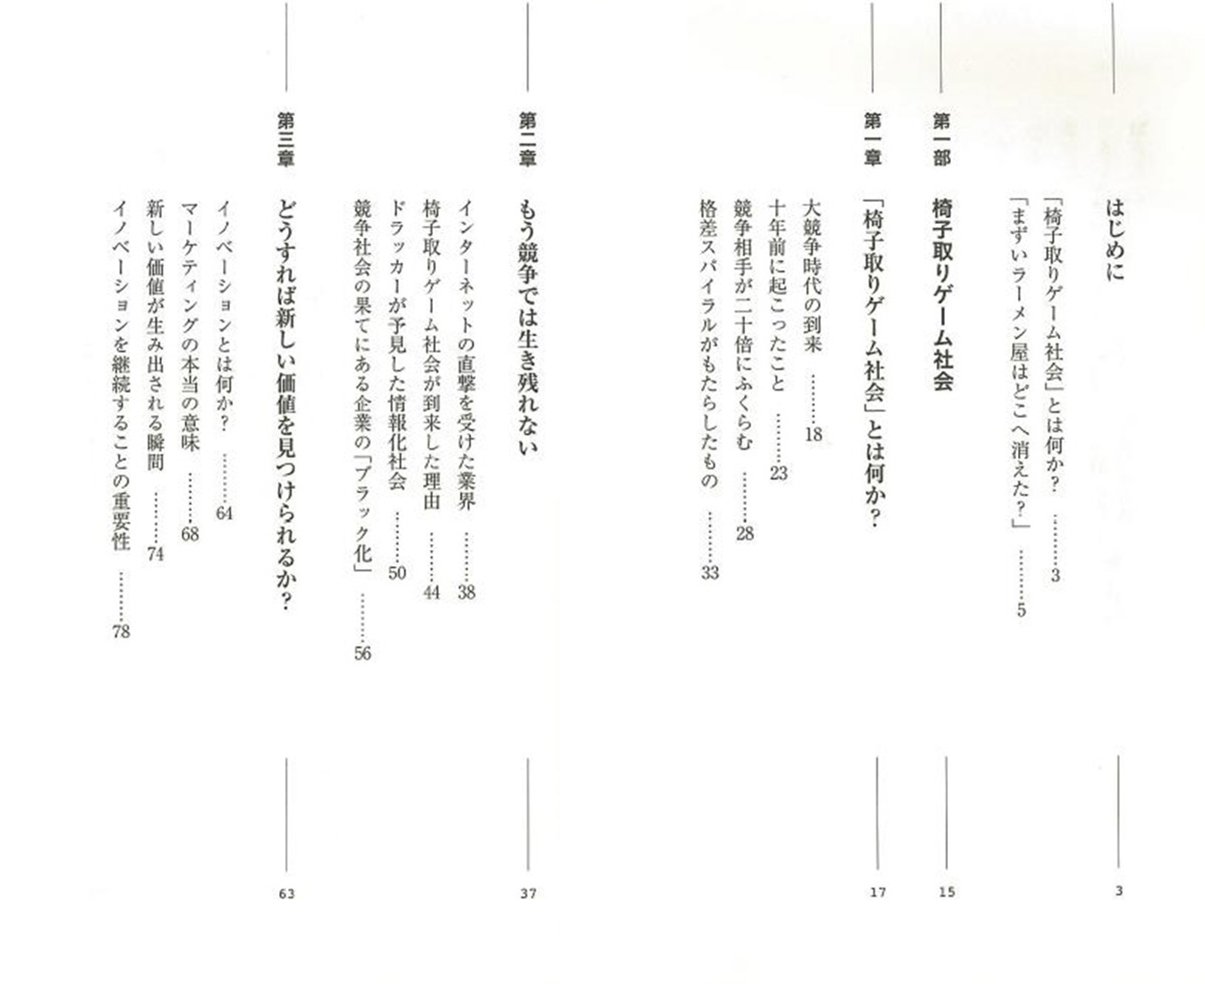 はじめに 3
「椅子取りゲーム社会」とは何か? ………3
「まずいラーメン屋はどこへ消えた?」 ………5
第一部 椅子取りゲーム社会 15
第一章 「椅子取りゲーム社会」とは何か? 17
大競争時代の到来 ………18
十年前に起こったこと ………23
競争相手が二十倍にふくらむ ………28
格差スパイラルがもたらしたもの ………33
第二章 もう競争では生き残れない 37
インターネットの直撃を受けた業界 ………38
椅子取りゲーム社会が到来した理由 ………44
ドラッカーが予見した情報化社会 ………50
競争社会の果てにある企業の「ブラック化」 ………56
第三章 どうすれば新しい価値を見つけられるか? 63
イノベーションとは何か? ………64
マーケティングの本当の意味 ………68
新しい価値が生み出される瞬間 ………74
イノベーションを継続することの重要性 ………78